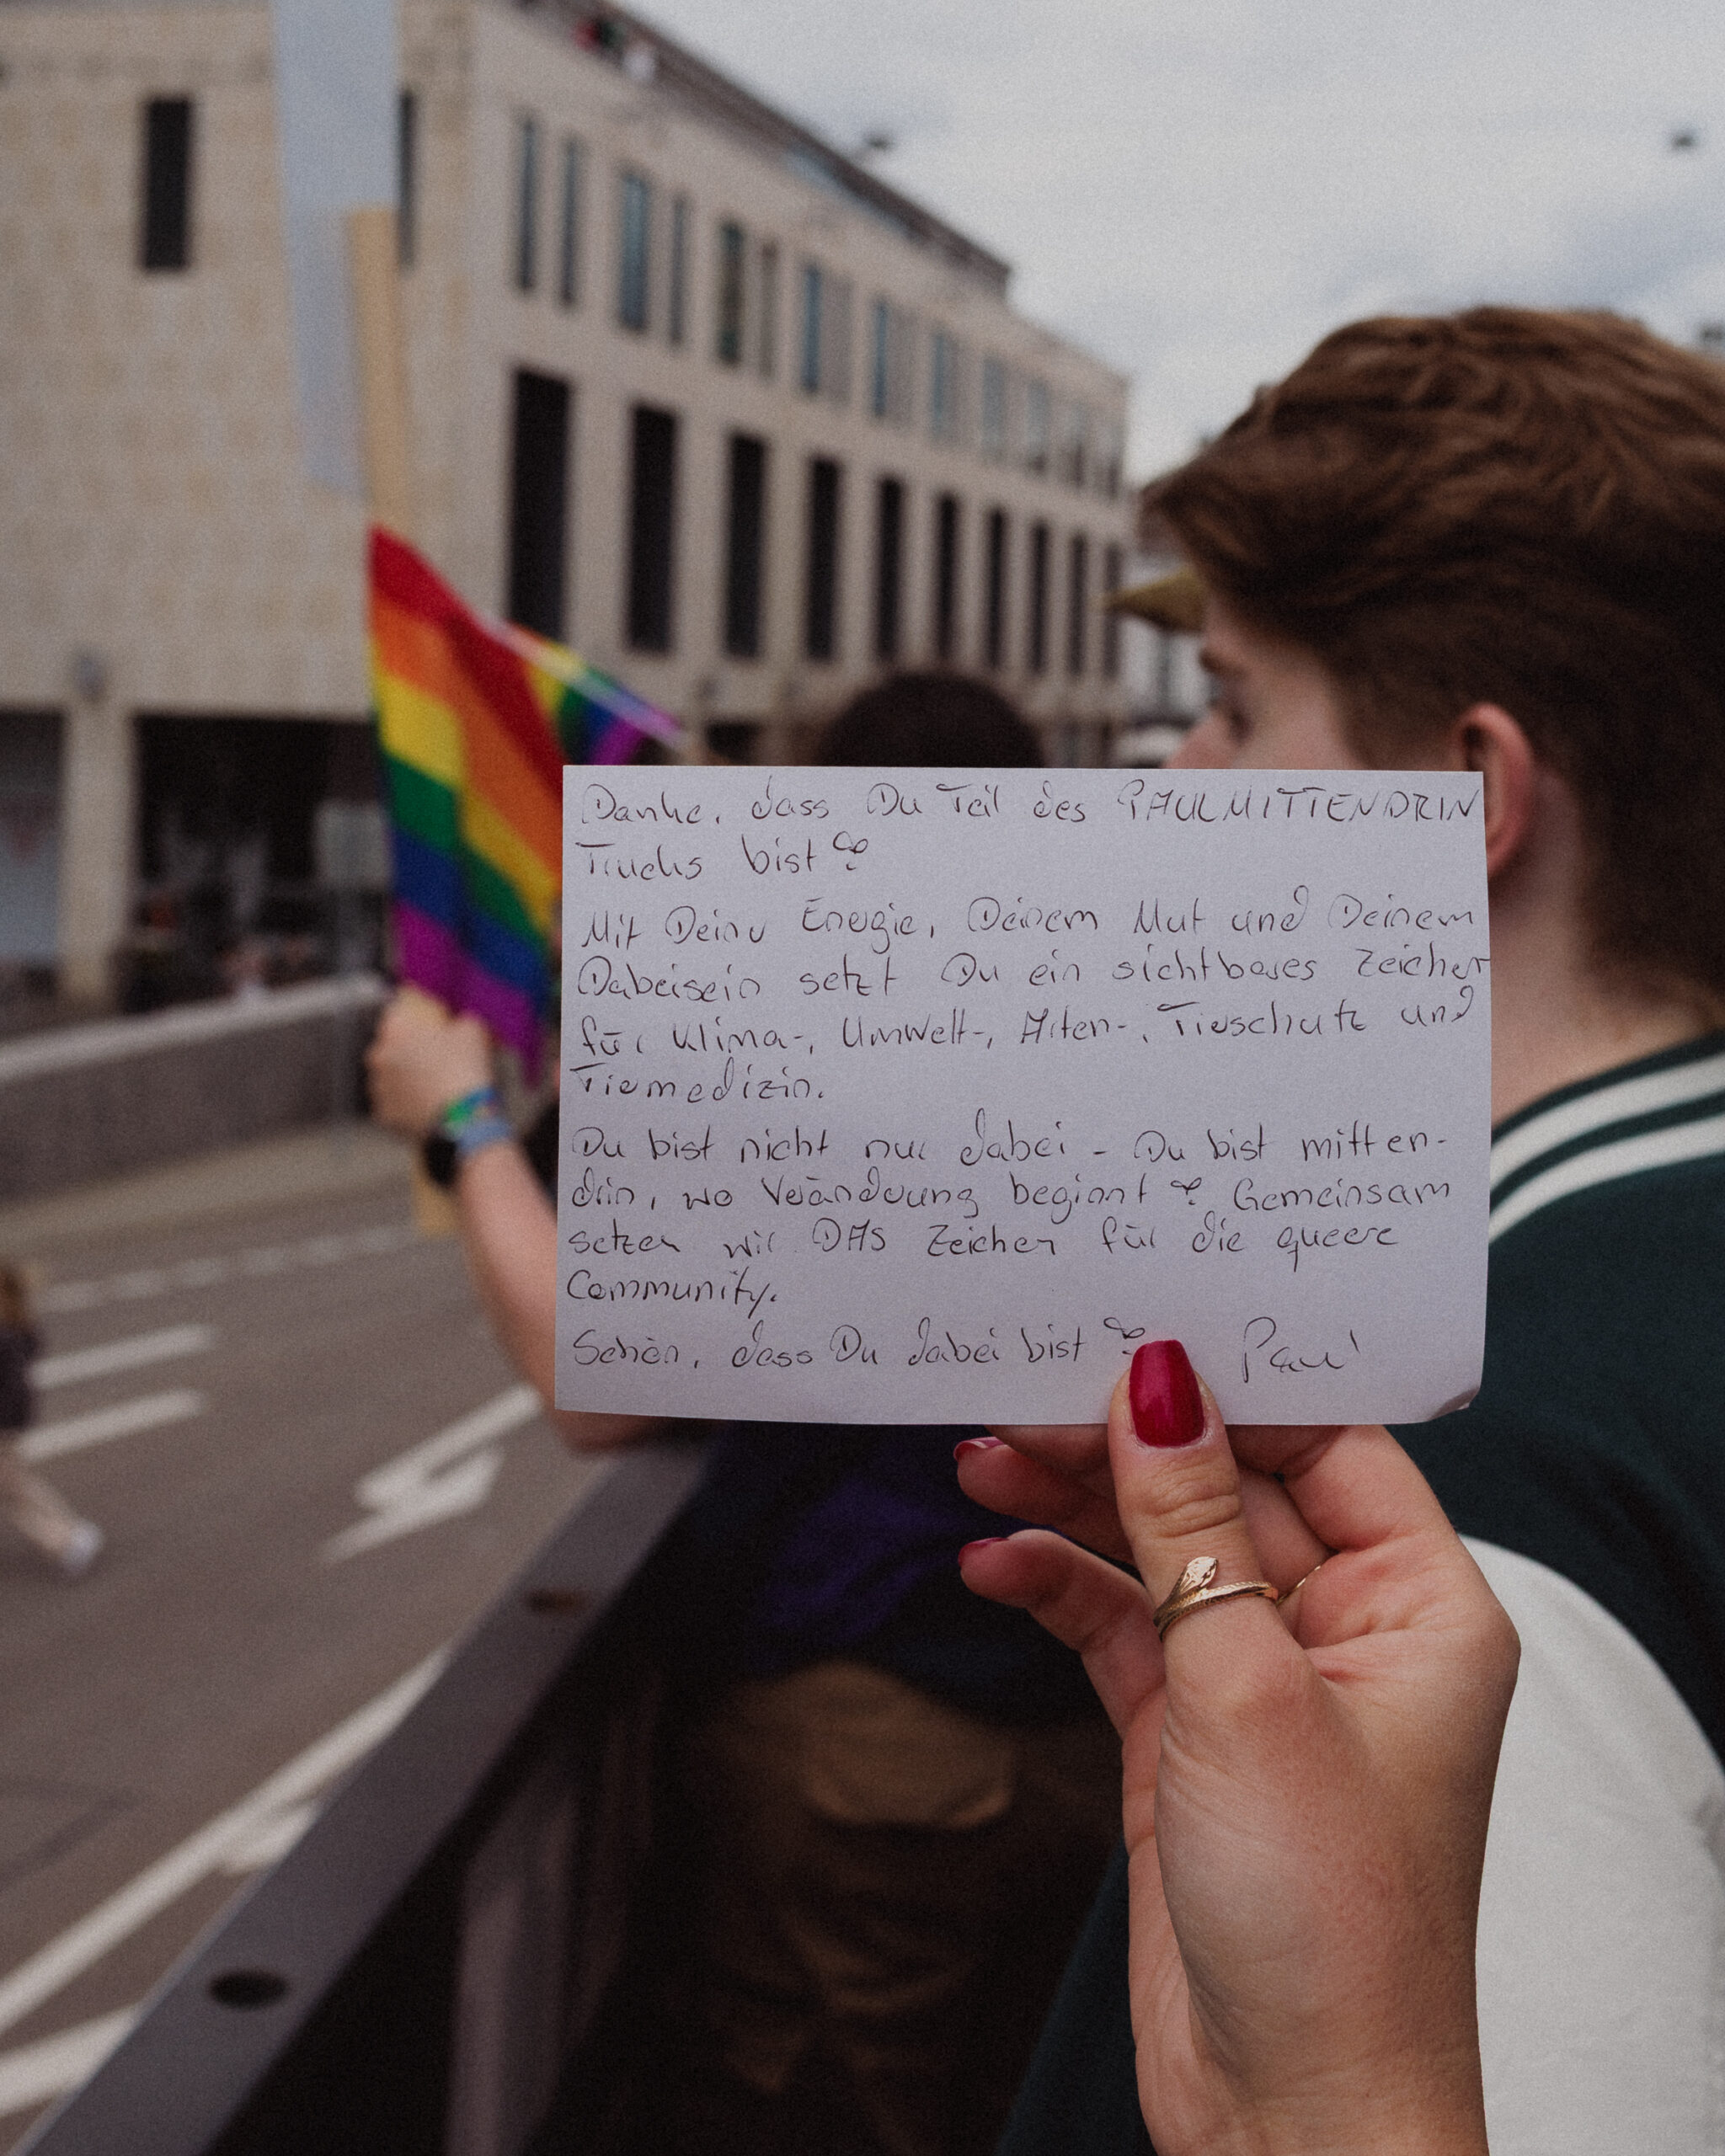 Danke, dass Du Teil des PAULMITTENDRIN
Trucks bist
Mit Deiner Energie, Deinem Mut und Deinem
Dabeisein setzt Du ein sichtbares Zeichen
für Klima-, Umwelt-, Arten-, Tierschutz und
Tiermedizin.
Du bist nicht nur dabei - Du bist mitten-
drin, wo Veränderung beginnt Gemeinsam
setzen wir DAS Zeichen für die queere
Community.
Schön, dass Du dabei bist Paul